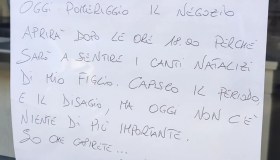 OGGI POMERIGGIO IL NEGOZIO
APRIRÀ DOPO LE ORE 18.00 PERCHÉ
SARÒ A SENTIRE I CANTI NATALIZI
DI MIO FIGLIO. CAPISCO IL PERIODO
E IL DISAGIO, MA OGGI NON C'È
NIENTE DI PIÙ IMPORTANTE.
SO CHE CAPIRETE...